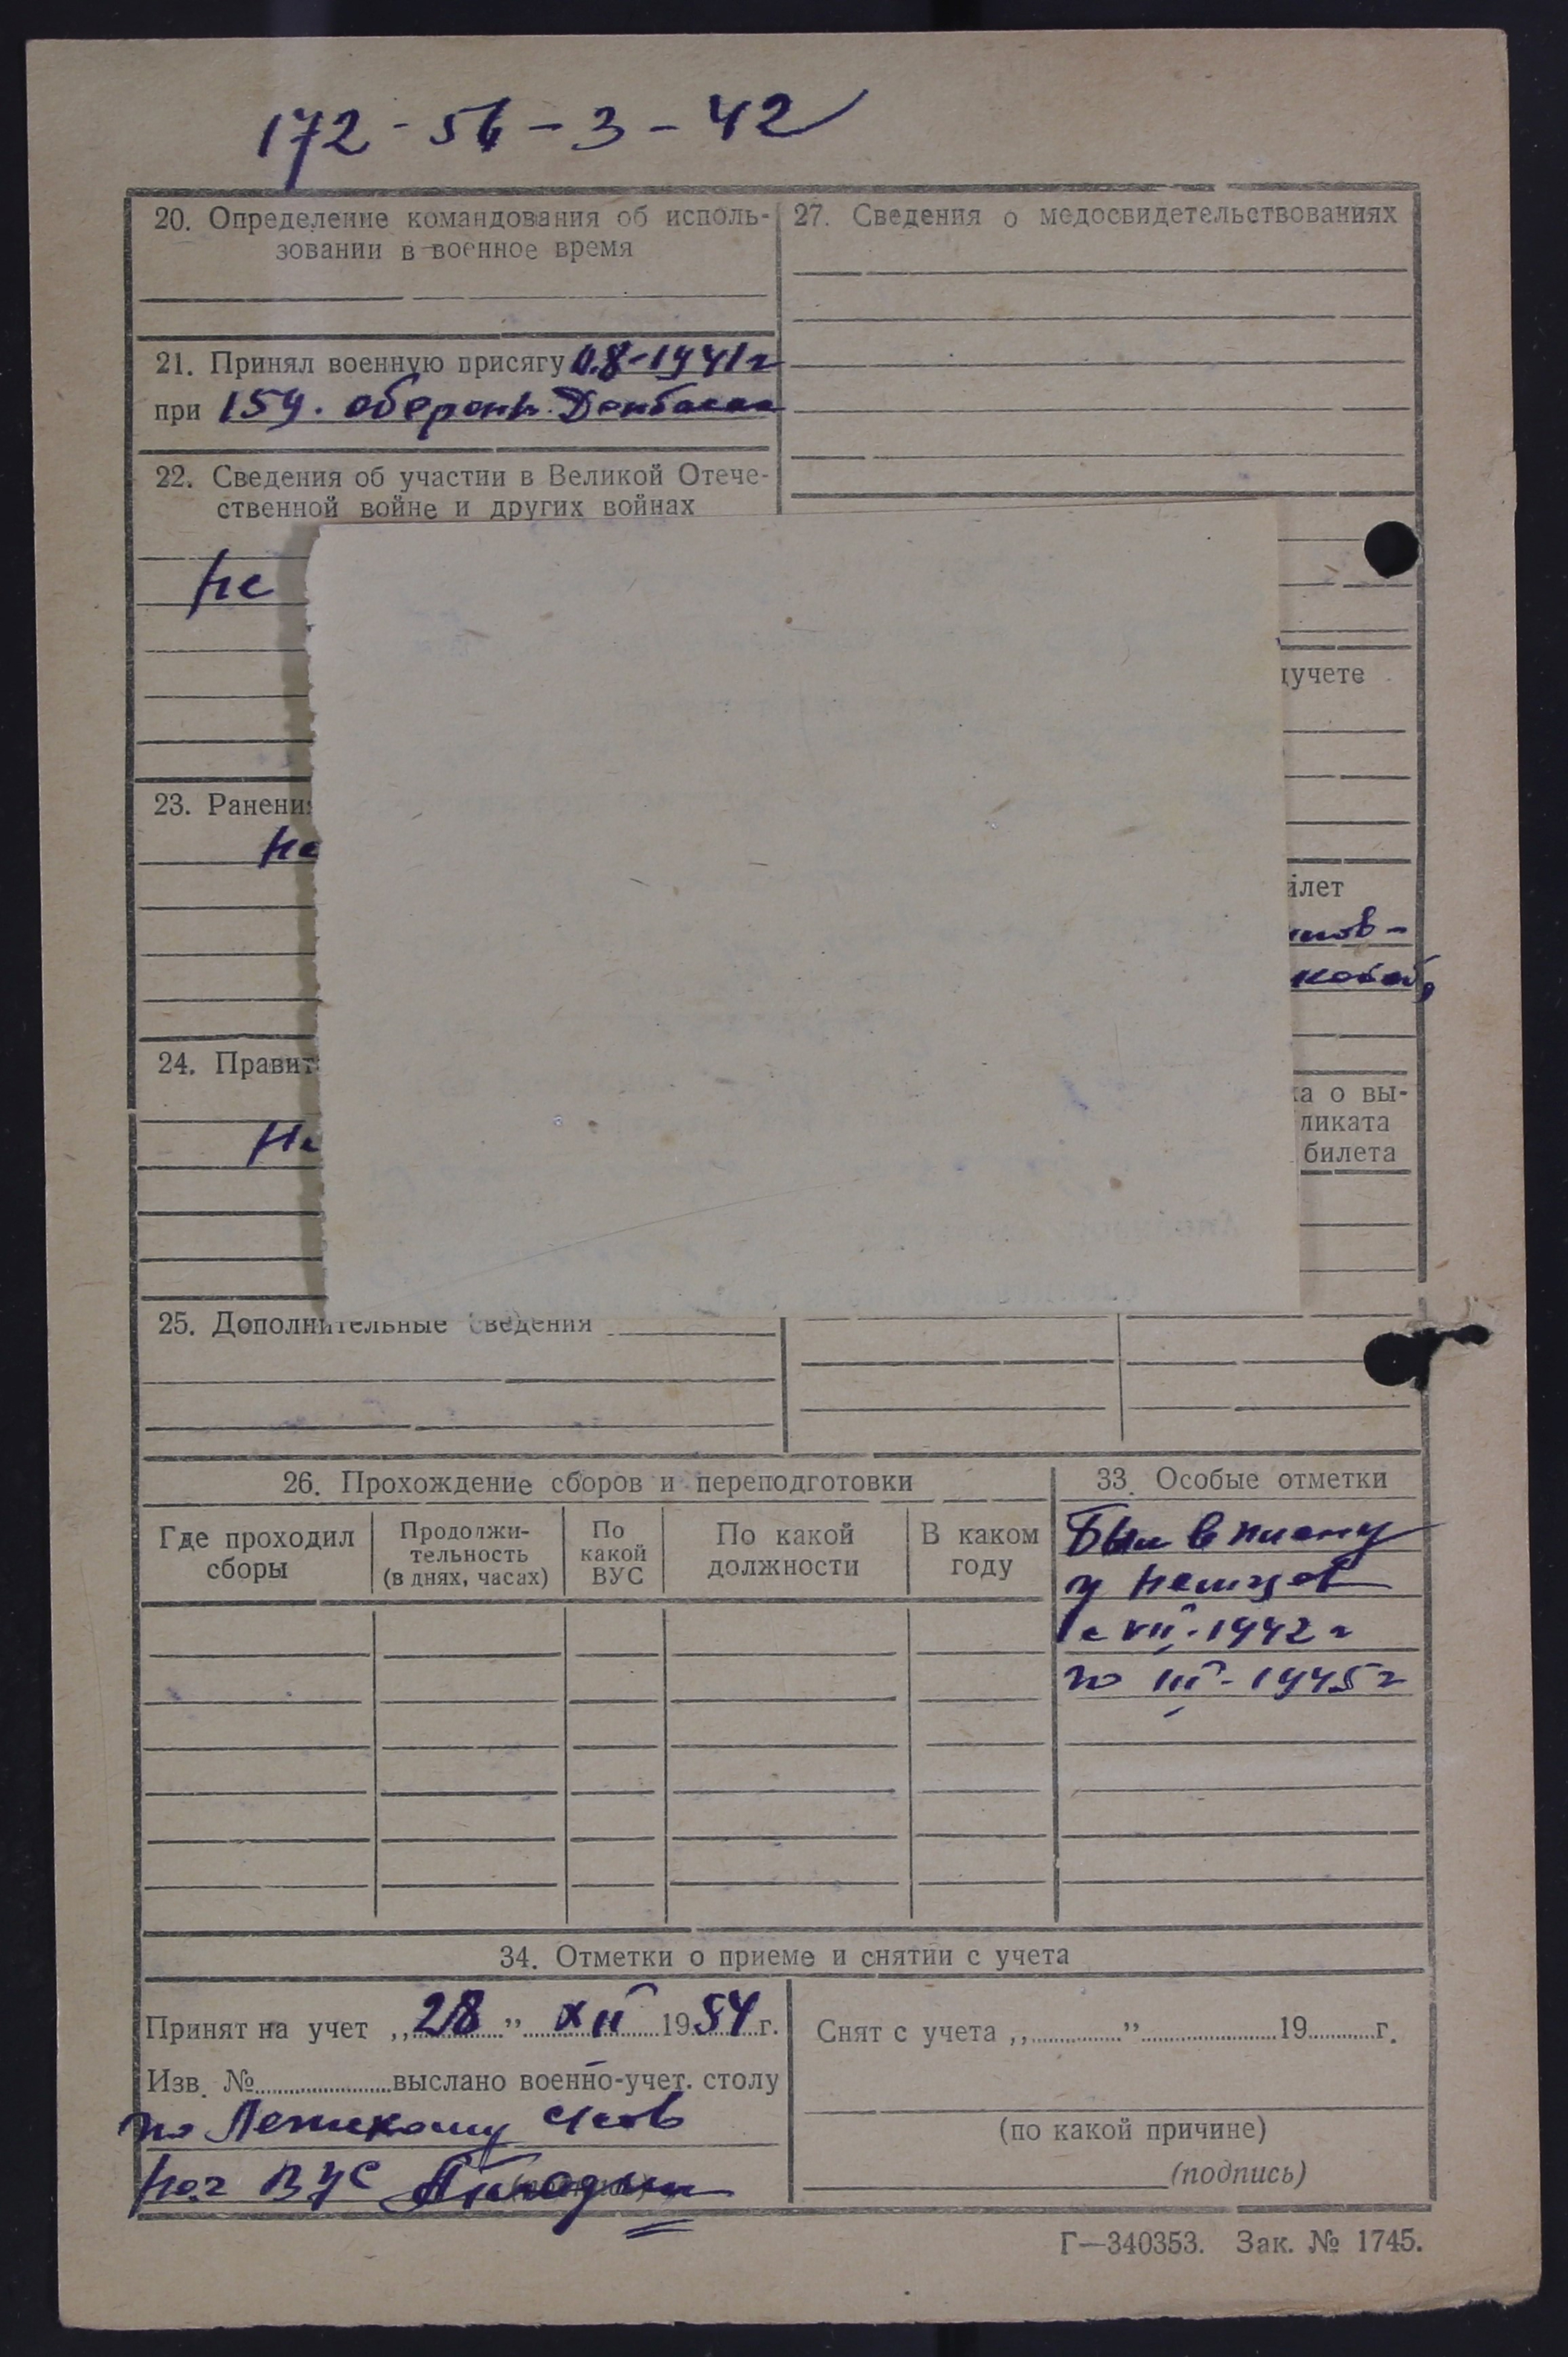 172-56-3-42
20. Определение командования об исполь-
зовании в военное время
21. Принял военную присягу 0.8-1941г
при 159. оборонь. Донбасса
22. Сведения об участии в Великой Отече-
ственной войне и других войнах
не
23. Ранени
не
24. Правит
Не
25. Дополнительные сведения
27. Сведения о медосвидетельствованиях
учете
илет
нов-
ковой,
ка о вы-
ликата
билета
26. Прохождение сборов и переподготовки
Где проходил
сборы
Продолжи-
тельность
(в днях, часах)
По
какой
ВУС
По какой
должности
В каком
году
33. Особые отметки
Был в плену
у немцев
с VII-1942 г
по III-1945 г
34. Отметки о приеме и снятии с учета
Принят на учет „28" XII 1954 г.
Изв. № выслано военно-учет. столу
по
нач ВУС
Снят с учета „ " 19 г.
(по какой причине)
(подпись)
Г—340353. Зак. № 1745.